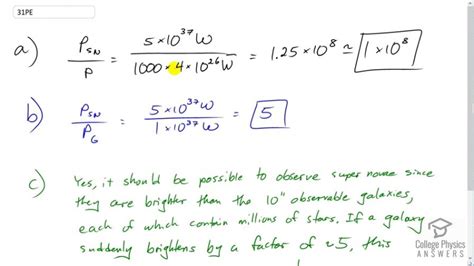 31PE
a) P_SN / P = 5×10^37 W / 1000×4×10^26 W = 1.25×10^8 ≃ 1×10^8
b) P_SN / P_G = 5×10^37 W / 1×10^37 W = 5
c) Yes, it should be possible to observe super novae since
they are brighter than the 10^11 observable galaxies,
each of which contain millions of stars. If a galaxy
suddenly brightens by a factor of ~5, this
College Physics
ANSWERS